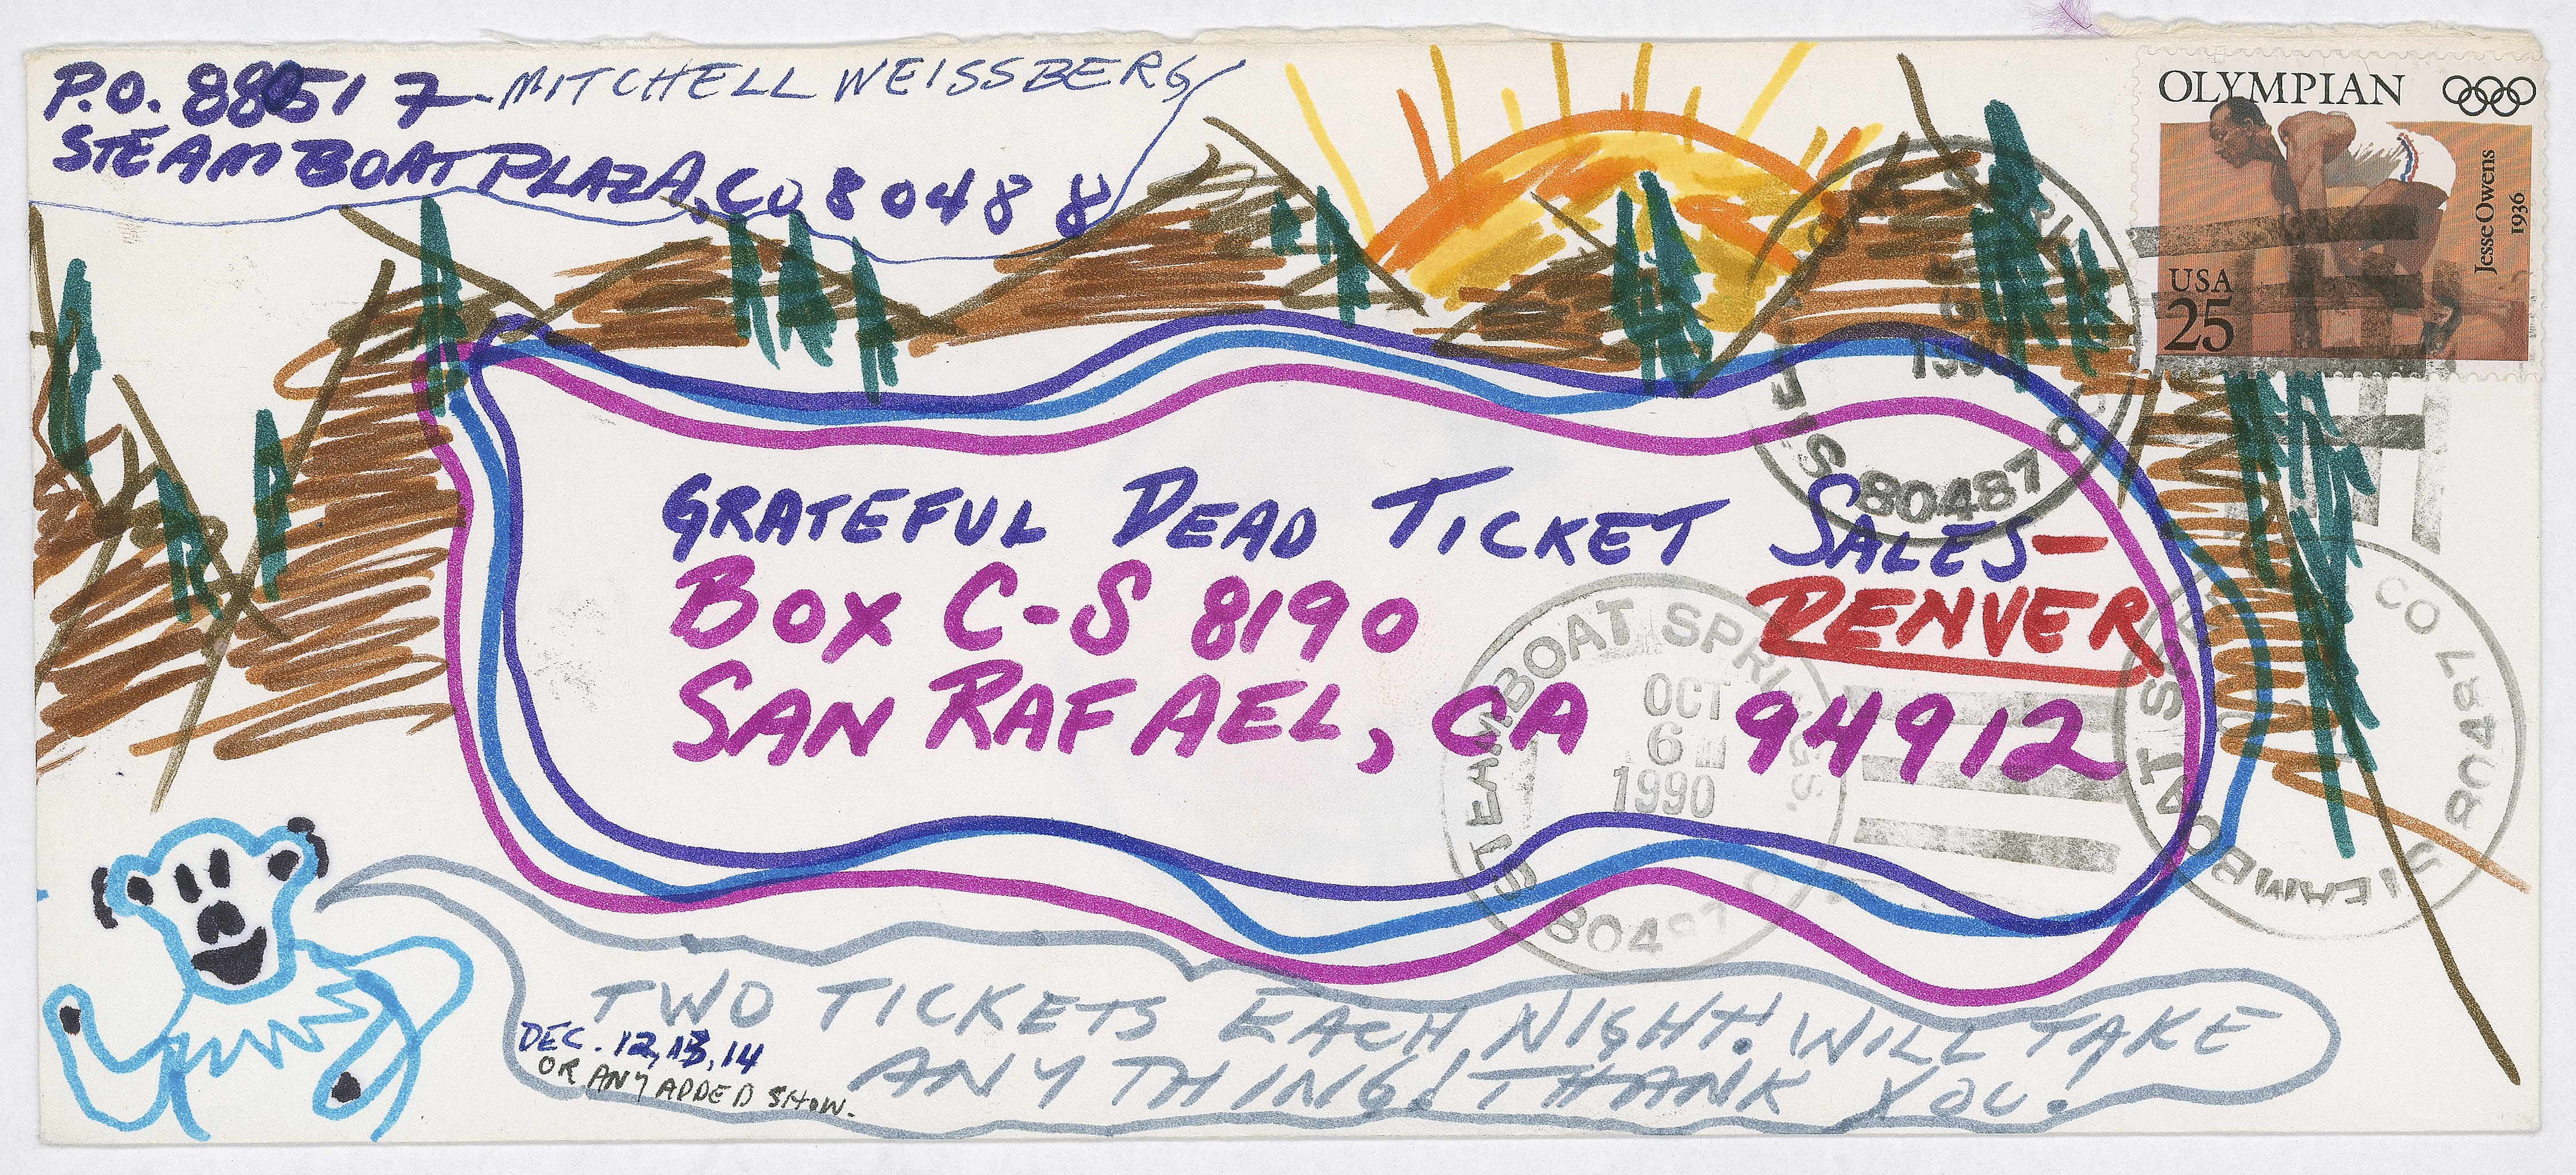 P.O. 880517 - MITCHELL WEISSBERG
STEAMBOAT PLAZA, CO 80488
OLYMPIAN
Jesse Owens
1936
USA
25
80487
GRATEFUL DEAD TICKET SALES-
DENVER
BOX C-S 8190
SAN RAFAEL, CA 94912
STEAMBOAT SPRINGS,
OCT
6
1990
80487
STEAMBOAT
CO 80487
TWO TICKETS EACH NIGHT! WILL TAKE
ANYTHING! THANK YOU!
DEC. 12, 13, 14
OR ANY ADDED SHOW.